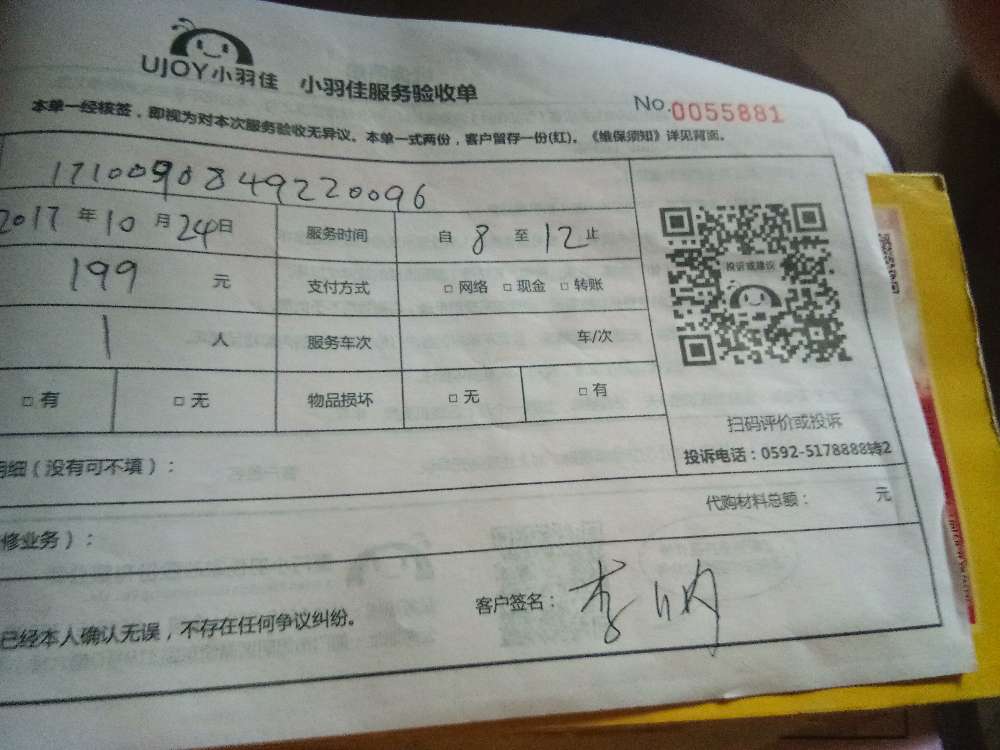 UJOY小羽佳 小羽佳服务验收单
No.0055881
本单一经核签，即视为对本次服务验收无异议。本单一式两份，客户留存一份(红)。《维保须知》详见背面。
1710090849220096
2017 年 10 月 24日 服务时间 自 8 至 12 止
投诉或建议
199 元 支付方式 □ 网络 □ 现金 □ 转账
1 人 服务车次 车/次
□ 有 □ 无 物品损坏 □ 无 □ 有
扫码评价或投诉
投诉电话：0592-5178888转2
明细（没有可不填）：
代购材料总额： 元
修业务）：
已经本人确认无误，不存在任何争议纠纷。 客户签名：李